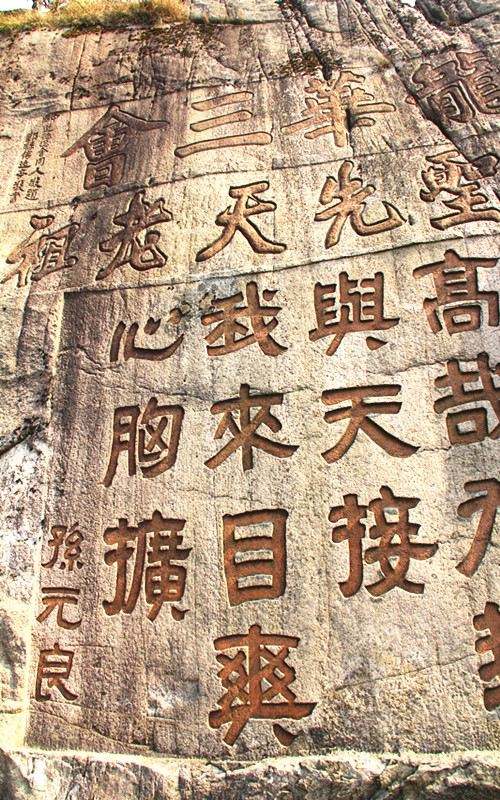 龍華三會
聖先天老祖
高哉
與天接
我來目爽
心胸擴
孫元良